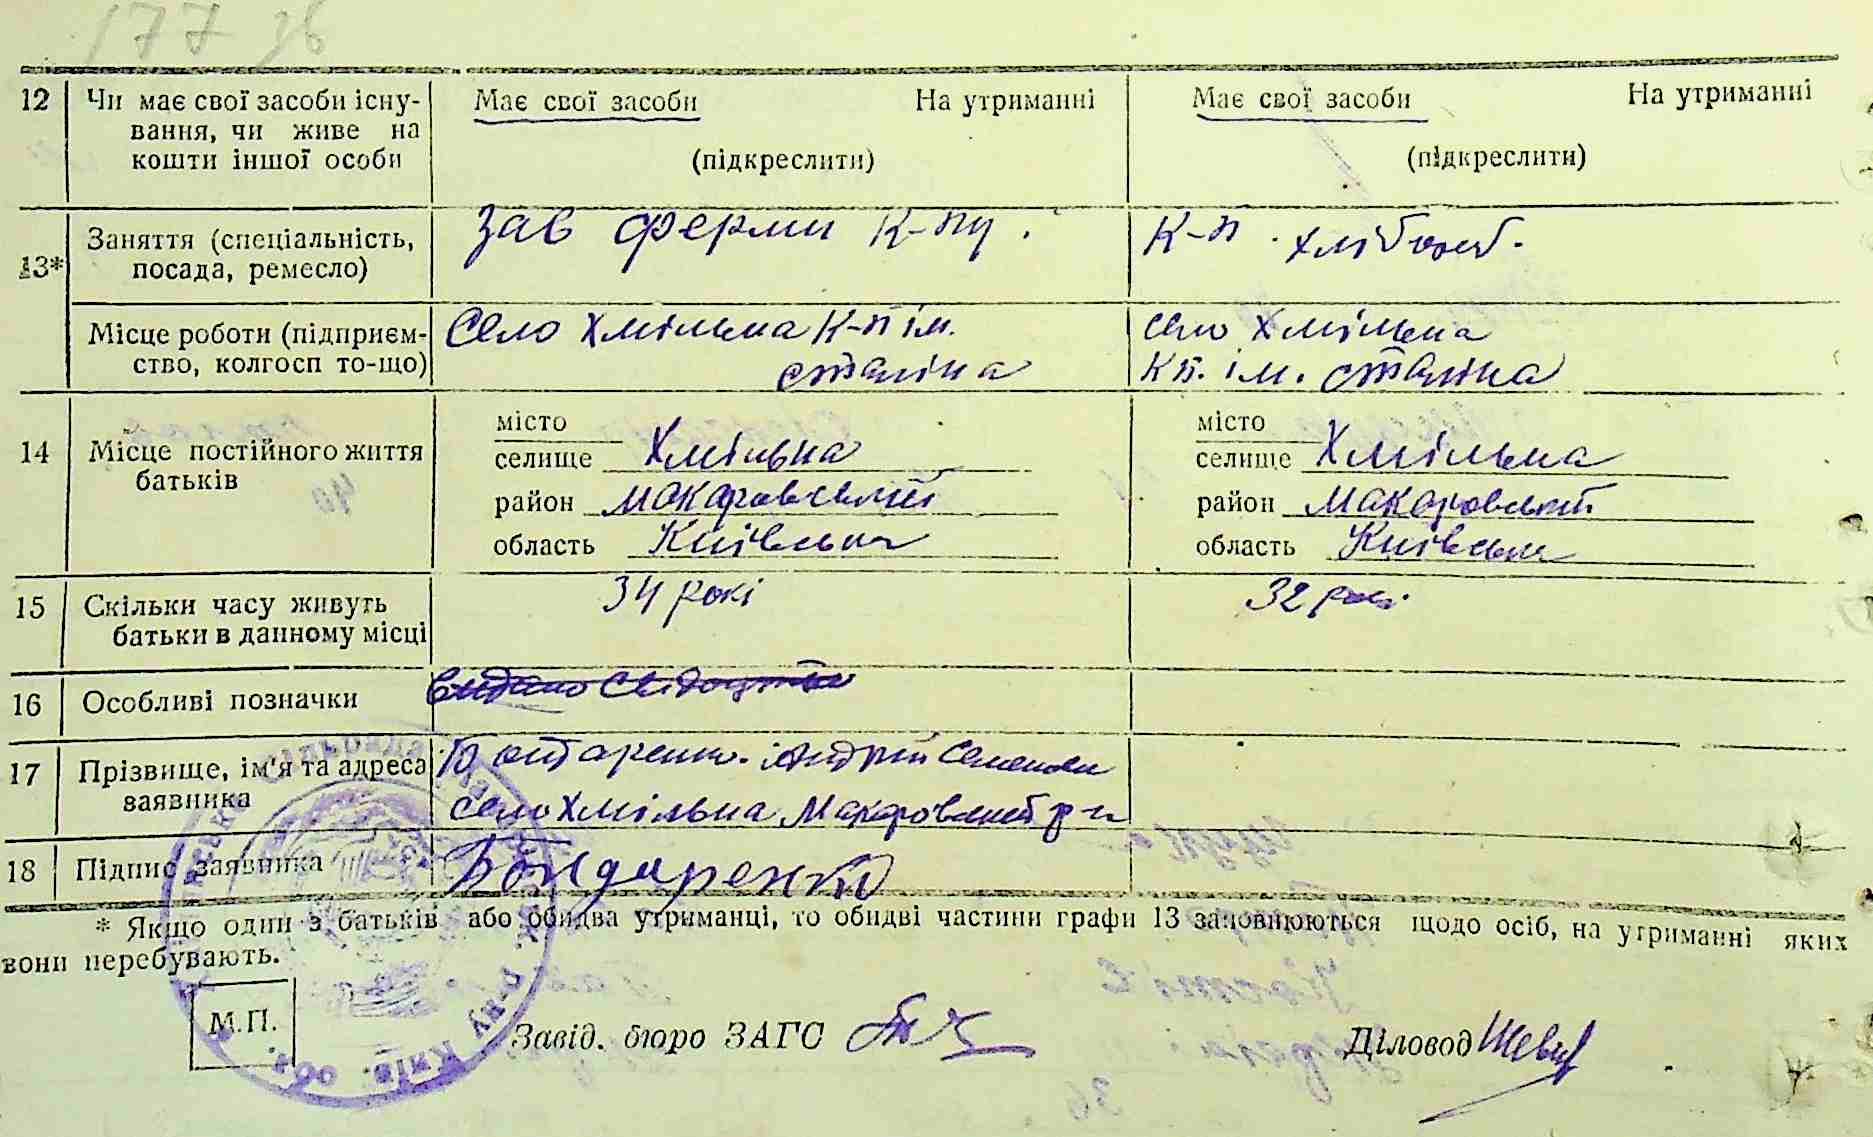 177 зб
12 Чи має свої засоби існу- Має свої засоби На утриманні Має свої засоби На утриманні
вання, чи живе на
кошти іншої особи (підкреслити) (підкреслити)
13* Заняття (спеціальність, Зав ферми К-пу. К-п. хлібороб.
посада, ремесло)
Місце роботи (підприєм- Село Хмільна К-п ім. село Хмільна
ство, колгосп то-що) сталіна К п. ім. сталіна
14 Місце постійного життя місто місто
батьків селище Хмільна селище Хмільна
район макаровський район макаровський
область Київська область Київська
15 Скільки часу живуть 34 рокі 32 рокі
батьки в данному місці
16 Особливі позначки
17 Прізвище, ім'я та адреса Бондаренко Андрій
заявника село Хмільна Макаровський р-н
18 Підпис заявника Бондаренко
* Якщо один з батьків або обидва утриманці, то обидві частини графи 13 заповнюються щодо осіб, на утриманні яких
вони перебувають.
М.П. Завід. бюро ЗАГС Діловод
р-ну Київ. обл.